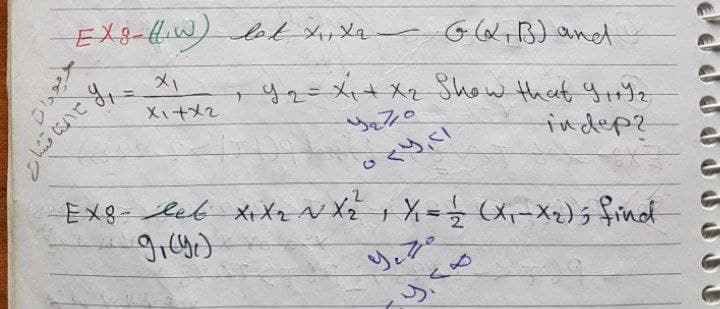 EX8- (H.W) let x₁, x₂ — G(α, β) and
y₁ = x₁ / x₁+x₂ , y₂ = x₁ + x₂ Show that y₁, y₂
indep?
y₂ ≥ 0
0 < y₁ < 1
EX8- let x₁ x₂ ~ X₂² , Y₁ = 1/2 (x₁ - x₂) ; find
g₁(y₁)
y₂ ≥ 0
< y₁ < ∞